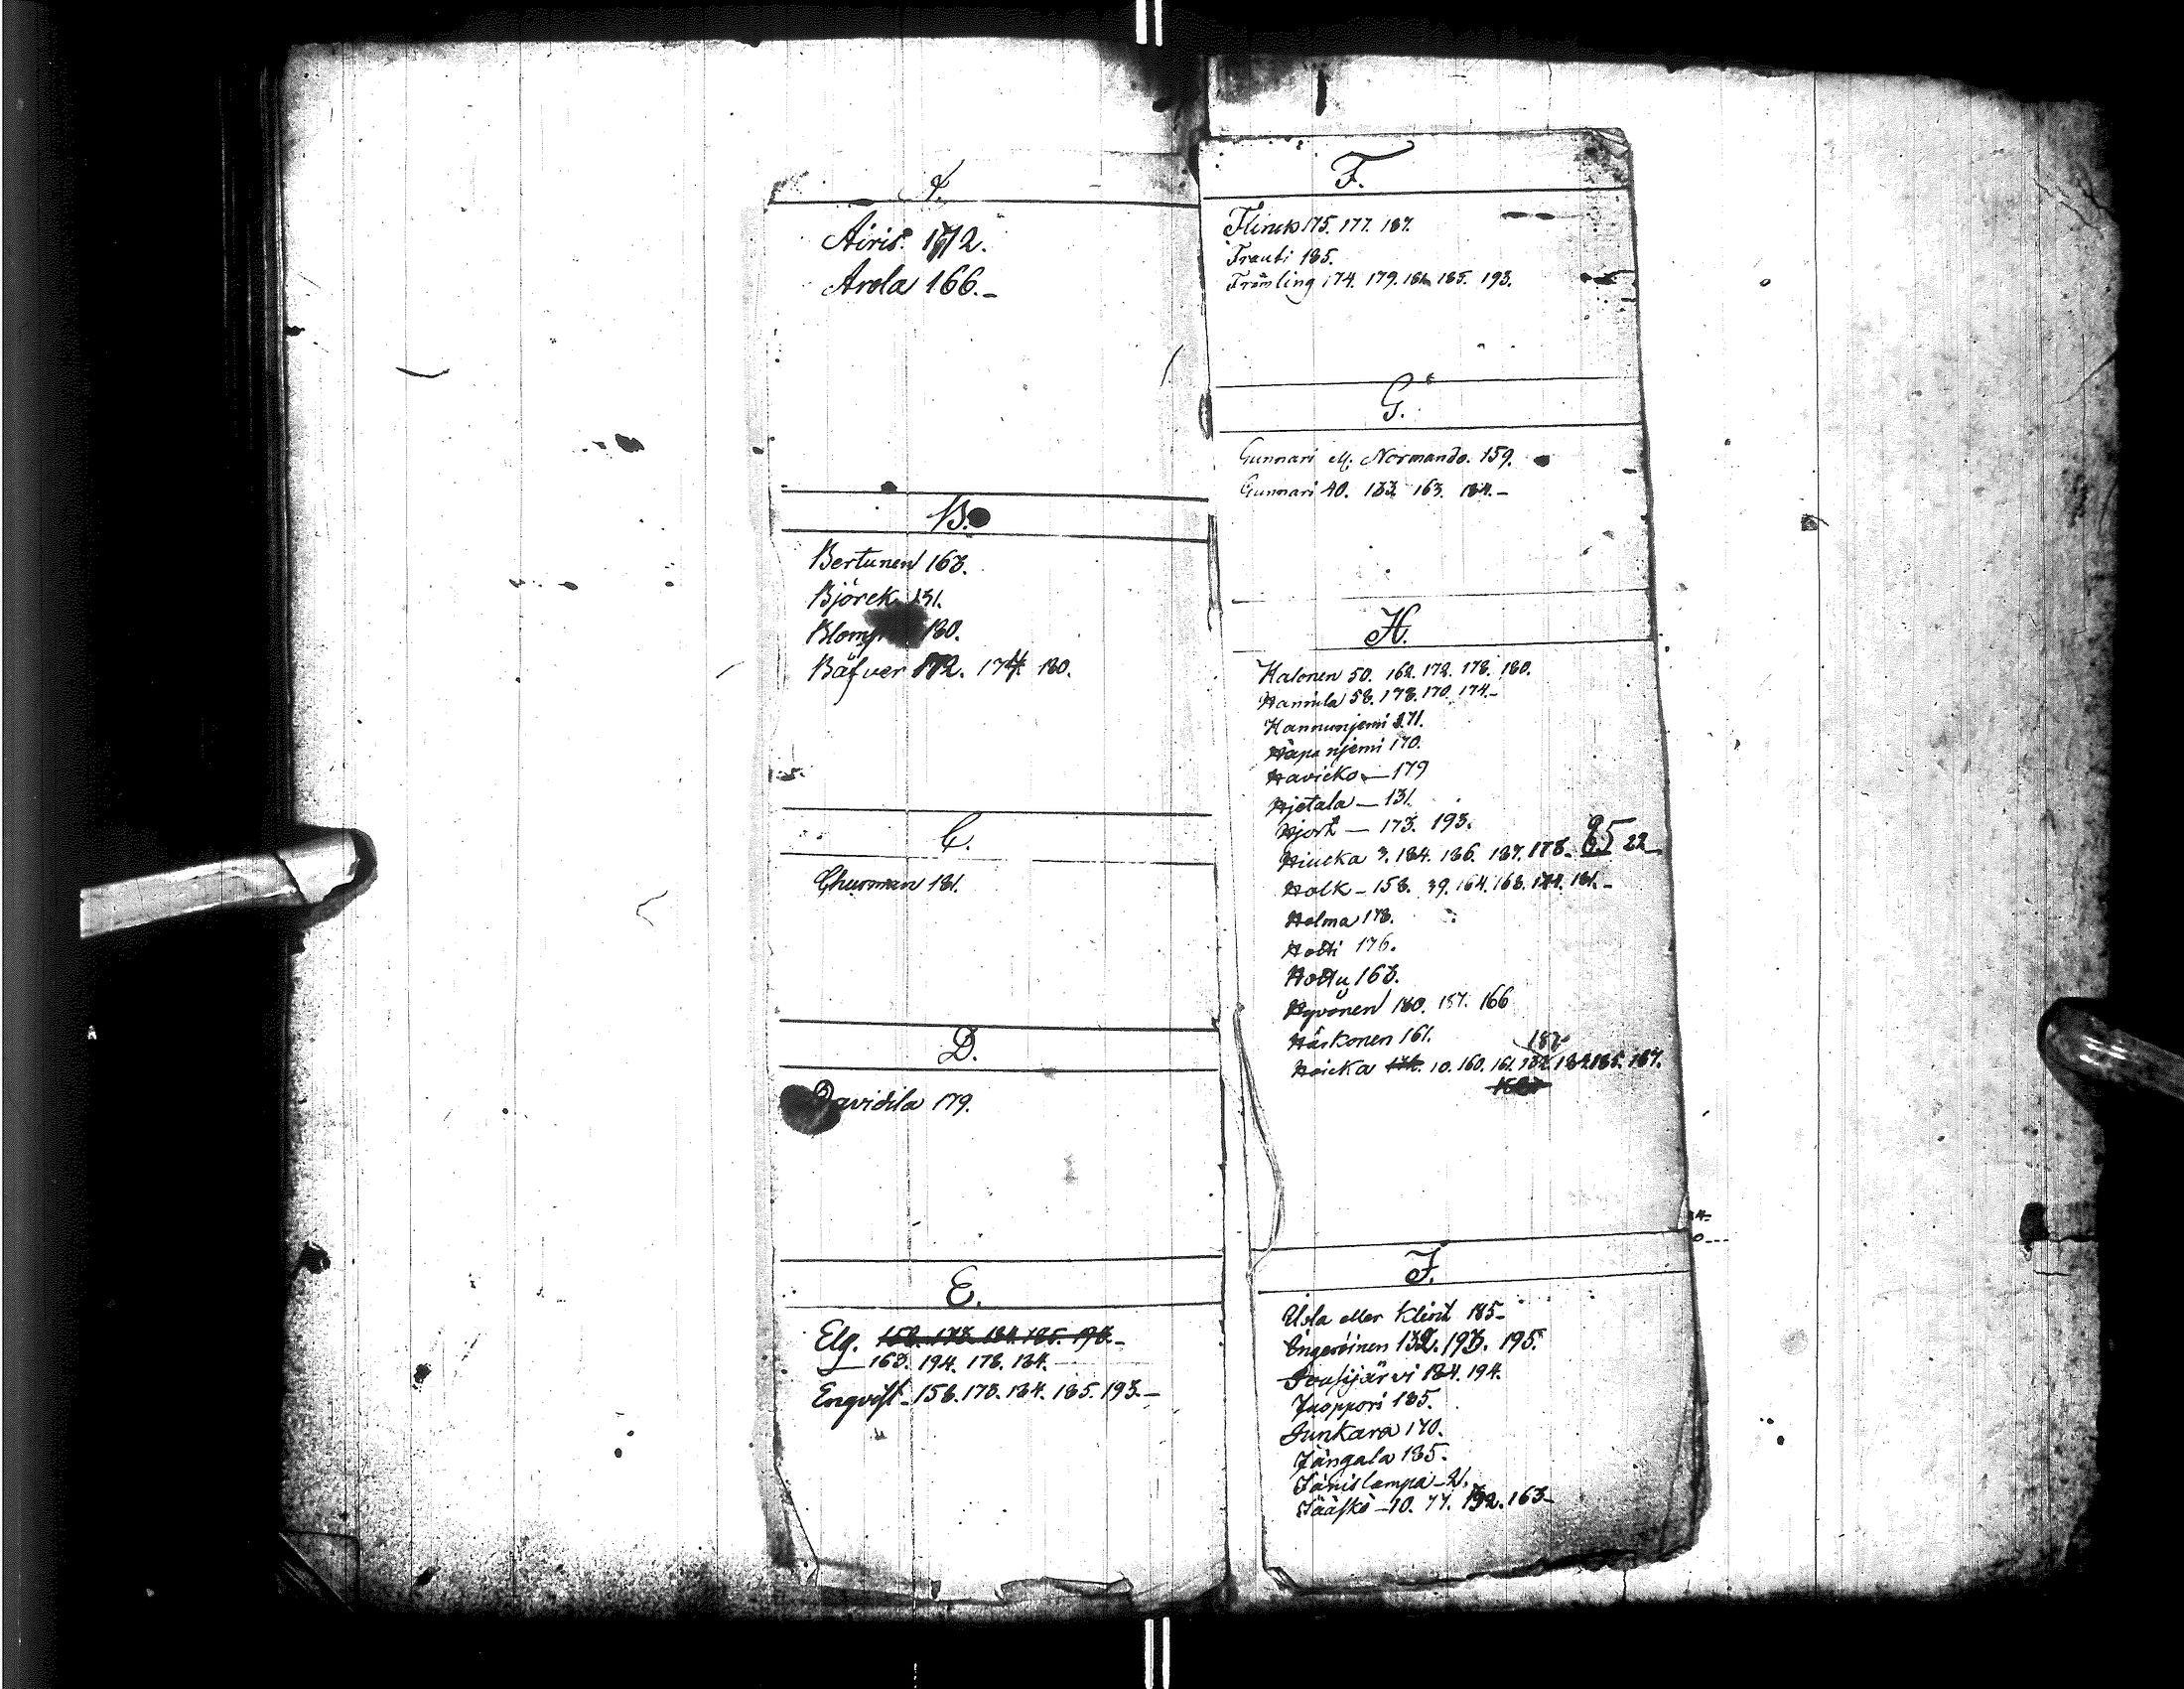 A.
Airis. 172.
Arola 166.–
B.
Bertunen 163.
Björck 131.
180.
Bäfver 172. 174. 180.
C.
Churman 181.
D.
Davidila 179.
E.
Elg. 158. 173. 184. 185. 193.–
163. 194. 178. 184.
Engvist – 158. 173. 184. 185. 193.–
F.
Flinck 175. 177. 187.
Frauti 185.
Främling 174. 179. 185. 193.
G.
Gunnari Normando. 159.
Gunnari 40. 133. 163. 184.–
H.
Halonen 50. 162. 172. 178. 180.
Hannila 58. 178. 170. 174.–
Hannunjemi 171.
Hapanjemi 170.
Havicko – 179
Hjetala – 131.
Hjort – 173. 193.
Hiucka 3. 184. 186. 187. 178. 22
Holk – 158. 39. 164. 168. 181.–
Holma 178.
Hotti 176.
Hottu 163.
Hyvönen 180. 157. 166
Häckonen 161.
Höicka 10. 160. 161. 185. 187.
J.
eller Klint 185–
Ingeröinen 132. 193. 195.
Jousijärvi 184. 194.
Juoppori 185.
Junkara 170.
Jängala 185.
Jänislampa – 21.
Jääskö – 10. 77. 192. 163–